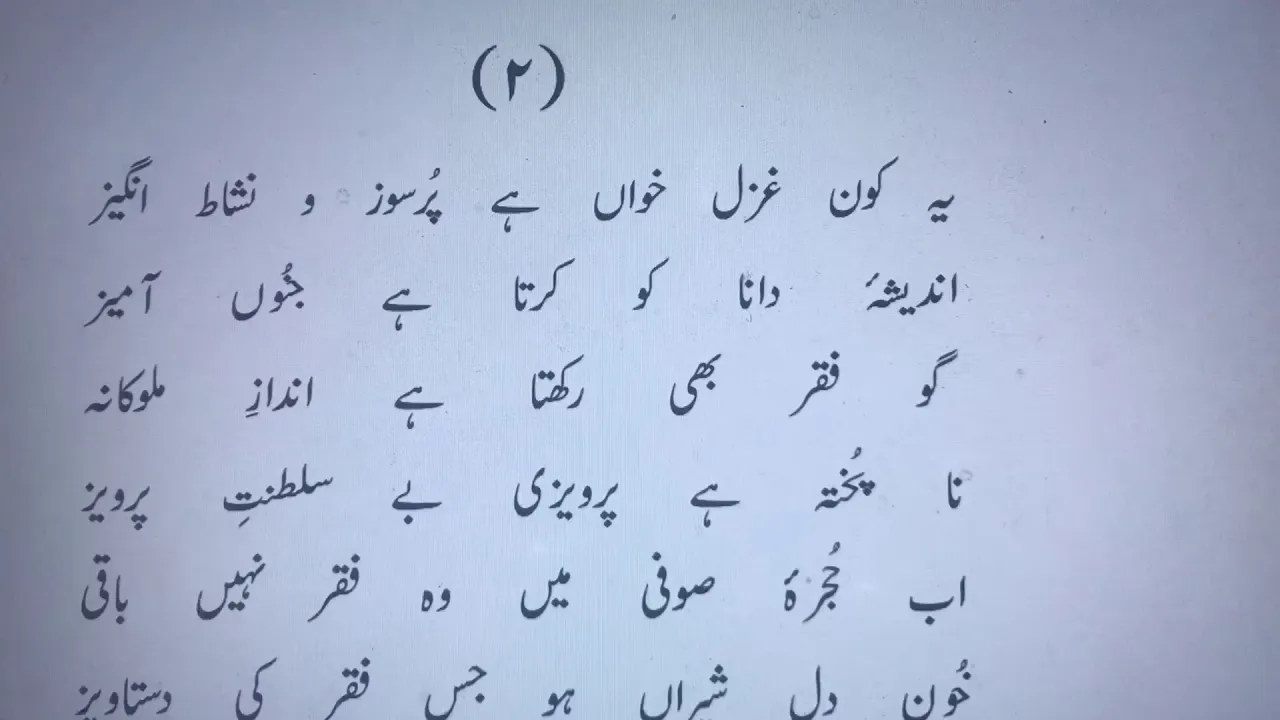 (۲)
یہ کون غزل خواں ہے پُرسوز و نشاط انگیز
اندیشۂ دانا کو کرتا ہے جنُوں آمیز
گو فقر بھی رکھتا ہے اندازِ ملوکانہ
نا پُختہ ہے پرویزی بے سلطنتِ پرویز
اب حُجرۂ صوفی میں وہ فقر نہیں باقی
خُون دل شیراں ہو جس فقر کی دستاویز